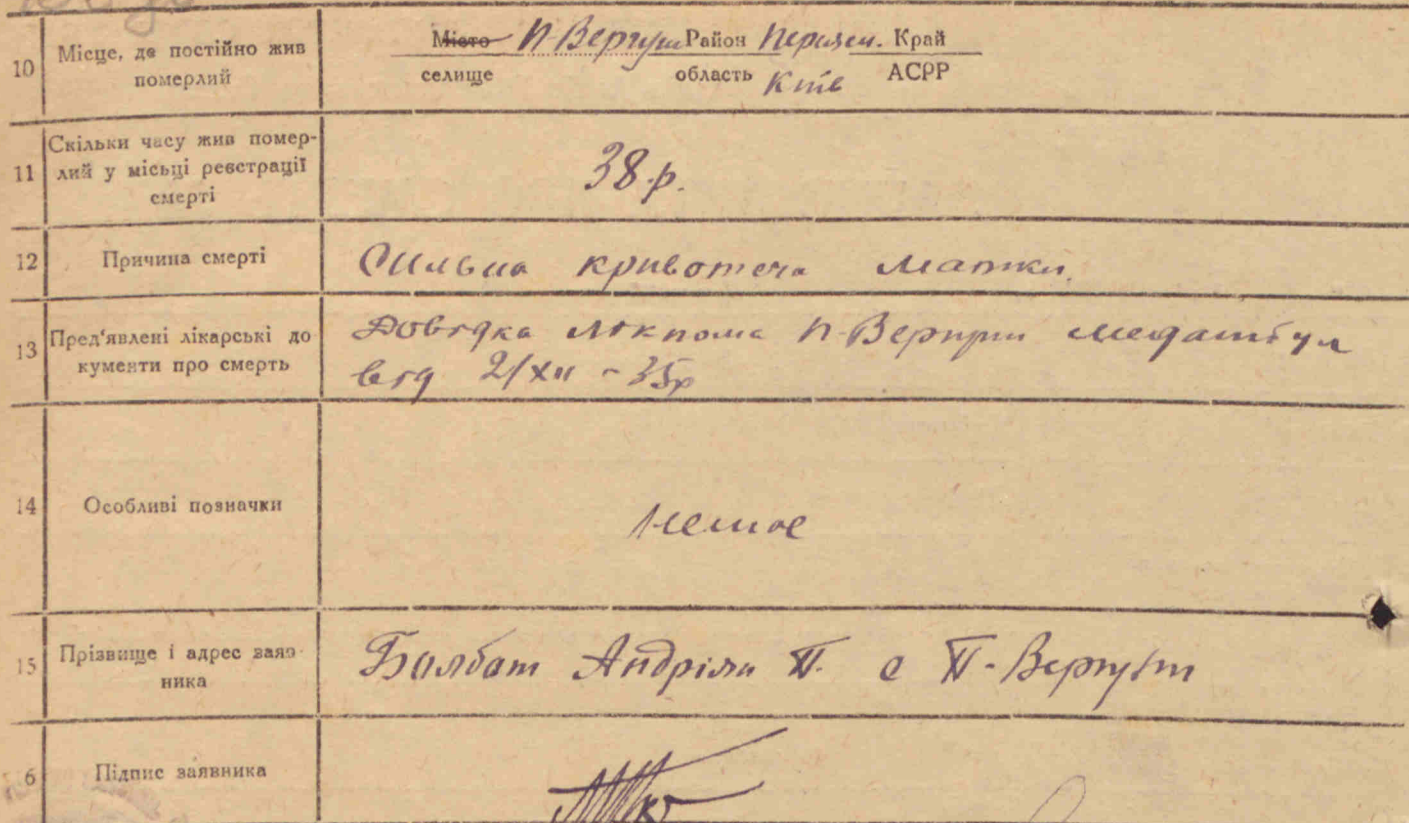 10 Місце, де постійно жив померлий
Місто П-Вергуни Район Переясл. Край
селище область Київ АСРР
11 Скільки часу жив помер-
лий у місьці реєстрації
смерті
38 р.
12 Причина смерті
Сильна кривотеча матки
13 Пред'явлені лікарські до
кументи про смерть
Довідка лікпома П-Вергуни медамбул
від 21/XII - 35р
14 Особливі позначки
немає
15 Прізвище і адрес заяв-
ника
Балбат Андріян П. с П-Вергуни
16 Підпис заявника